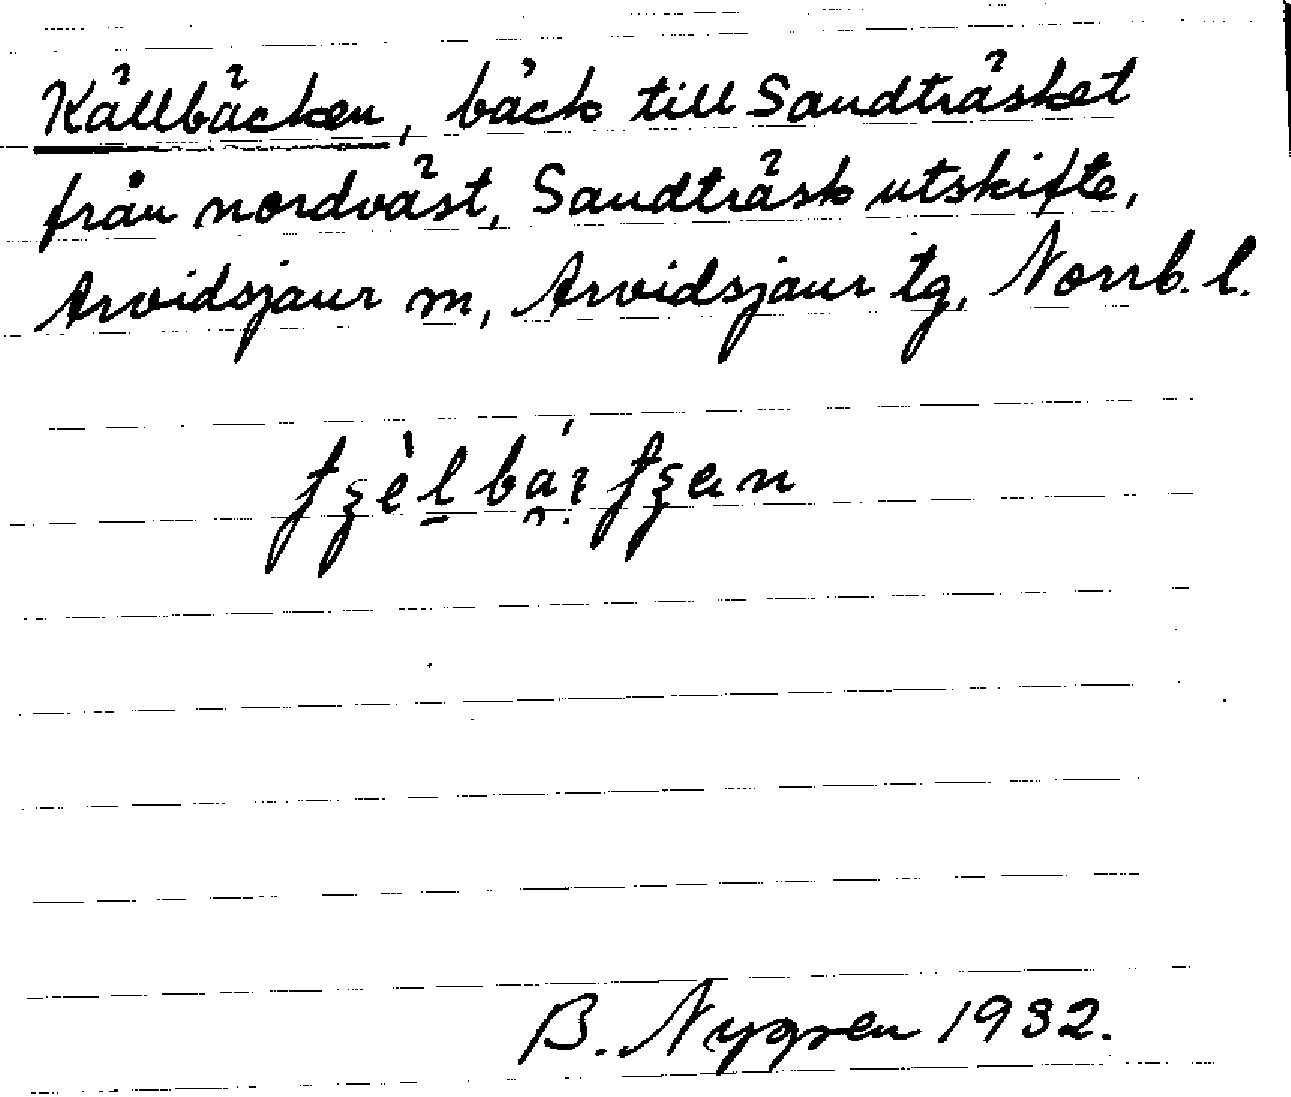 Källbäcken, bäck till Sandträsket
från nordväst, Sandträsk utskifte,
Arvidsjaur m, Arvidsjaur tg, Norrb. l.
B. Nygren 1932.